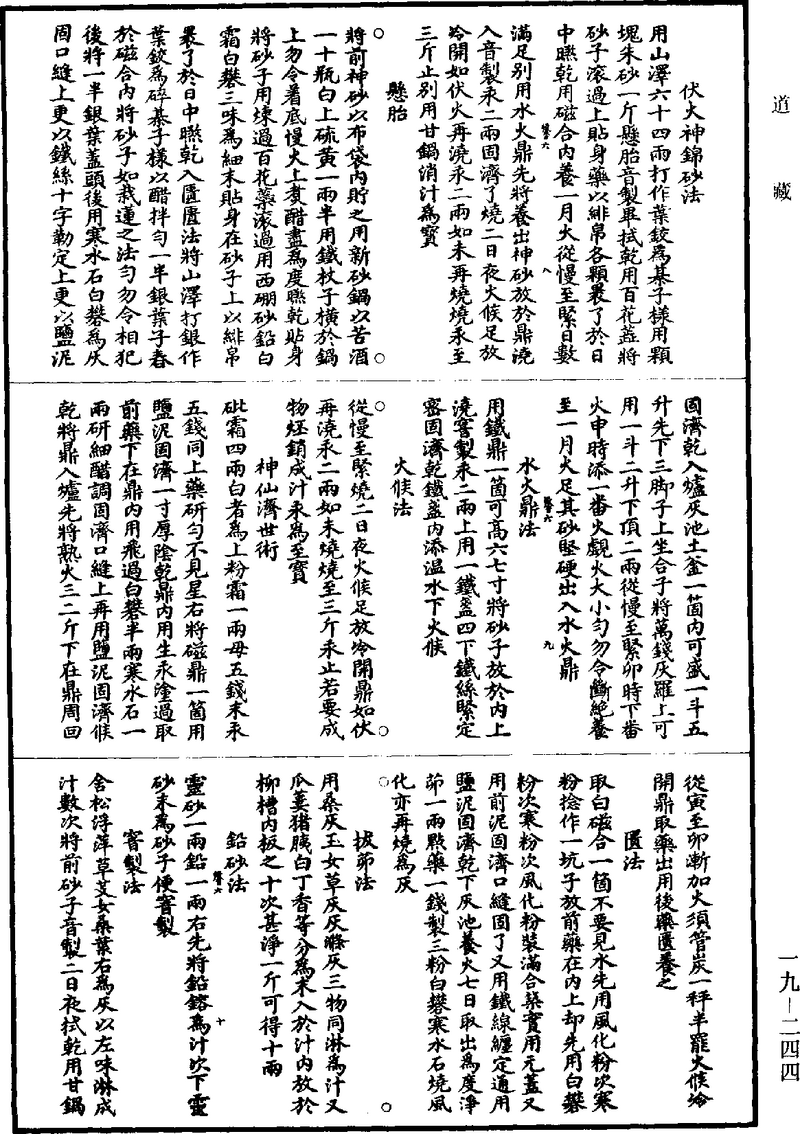 道藏
伏火神錦砂法
用山澤六十四兩打作葉鉸為棊子樣用顆
塊朱砂一斤懸胎音製畢拭乾用百花蕋將
砂子滾過上貼身藥以緋帛各顆褁了於日
中㬠乾用磁合內養一月火從慢至緊日數
滿足別用水火鼎先將養出神砂放於鼎澆
入音製汞二兩固濟了燒二日夜火候足放
冷開如伏火再澆汞二兩如未再燒燒汞至
三斤止別用甘鍋消汁為寳
懸胎
將前神砂以布袋內貯之用新砂鍋以苦酒
一十瓶白上硫黃一兩半用鐵杖子橫於鍋
上勿令著底慢火上煑醋盡為度㬠乾貼身
將砂子用煉過百花藥滾過用西硼砂鉛白
霜白礬三味為細末貼身在砂子上以緋帛
褁了於日中㬠乾入匱匱法將山澤打銀作
葉鉸為碎棊子樣以醋拌勻一半銀葉子舂
於磁合內將砂子如栽蓮之法勻勿令相犯
後將一半銀葉蓋頭後用寒水石白礬為灰
固口縫上更以鐵絲十字勒定上更以鹽泥
固濟乾入爐灰池土釜一箇內可盛一斗五
升先下三脚子上坐合子將萬錢灰羅上可
用一斗二升下頂二兩從慢至緊卯時下番
火申時添一番火覷火大小勻勿令斷絕養
至一月火足其砂堅硬出入水火鼎
水火鼎法
用鐵鼎一箇可高六七寸將砂子放於內上
澆音製汞二兩上用一鐵盞四下鐵絲緊定
密固濟乾鐵盞內添溫水下火候
火候法
從慢至緊燒二日夜火候足放冷開鼎如伏
再澆汞二兩如未燒燒至三斤汞止若要成
物烃銷成汁汞為至寳
神仙濟世術
砒霜四兩白者為上粉霜一兩母五錢末汞
五錢同上藥研勻不見星右將磁鼎一箇用
鹽泥固濟一寸厚陰乾鼎內用生汞塗過取
前藥下在鼎內用飛過白礬半兩寒水石一
兩研細醋調固濟口縫上再用鹽泥固濟候
乾將鼎入爐先將熟火三二斤下在鼎周回
從寅至卯漸加火須管炭一秤半罷火候冷
開鼎取藥出用後藥匱養之
匱法
取白磁合一箇不要見水先用風化粉次寒
粉捻作一坑子放前藥在內上却先用白礬
粉次寒粉次風化粉裝滿合築實用元蓋又
用前泥固濟口縫固了又用鐵線纏定通用
鹽泥固濟乾下灰池養火七日取出為度淨
茆一兩㸃藥一錢製三粉白礬寒水石燒風
化亦再燒為灰
拔茆法
用桑灰玉女草灰灰滌灰三物同淋為汁又
瓜蔞猪胰白丁香等分為末入於汁內放於
柳槽內板之十次甚淨一斤可得十兩
鉛砂法
靈砂一兩鉛一兩右先將鉛鎔為汁次下靈
砂末為砂子便音製
音製法
含松浮萍草芰女桑葉右為灰以左味淋成
汁數次將前砂子音製二日夜拭乾用甘鍋
一九—二四四